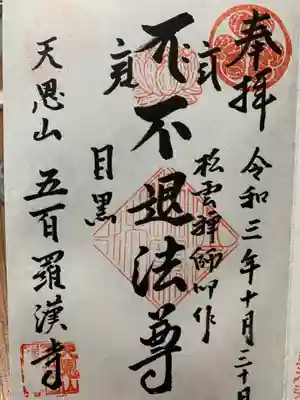 奉拝
令和三年十月
松雲禅師御作
不退法尊
目黒
天恩山 五百羅漢寺